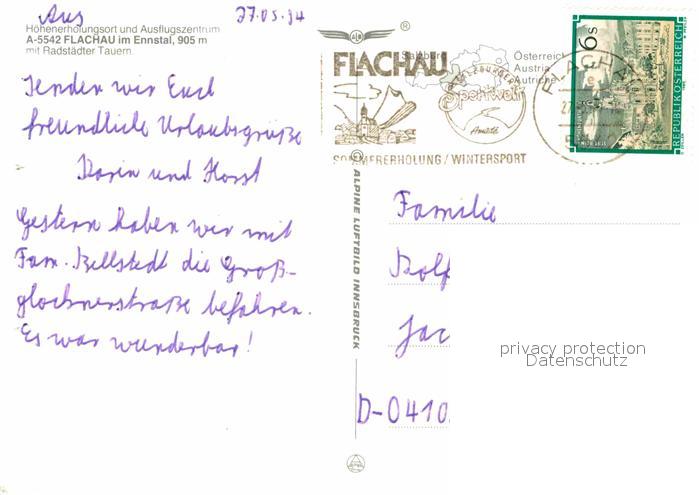 Aus 27.05.94
Höhenerholungsort und Ausflugszentrum
A-5542 FLACHAU im Ennstal, 905 m
mit Radstädter Tauern.
senden wir Euch
freundliche Urlaubsgrüße
Karin und Horst
Gestern haben wir mit
Fam. Bellstedt die Groß-
glocknerstraße befahren.
Es war wunderbar!
FLACHAU
Salzburg
Österreich
Austria
Autriche
SALZBURGER
Sportwelt
Amadé
SOMMERERHOLUNG/WINTERSPORT
© ALPINE LUFTBILD INNSBRUCK
FLACHAU
6 S
REPUBLIK ÖSTERREICH
Familie
Rolf
Jac
D-0410
privacy protection
Datenschutz